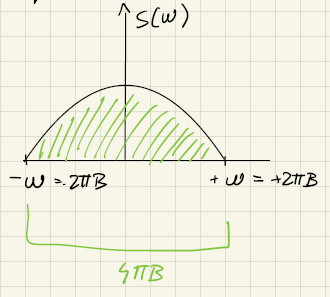 S(ω)
-ω = -2πB
+ω = +2πB
4πB